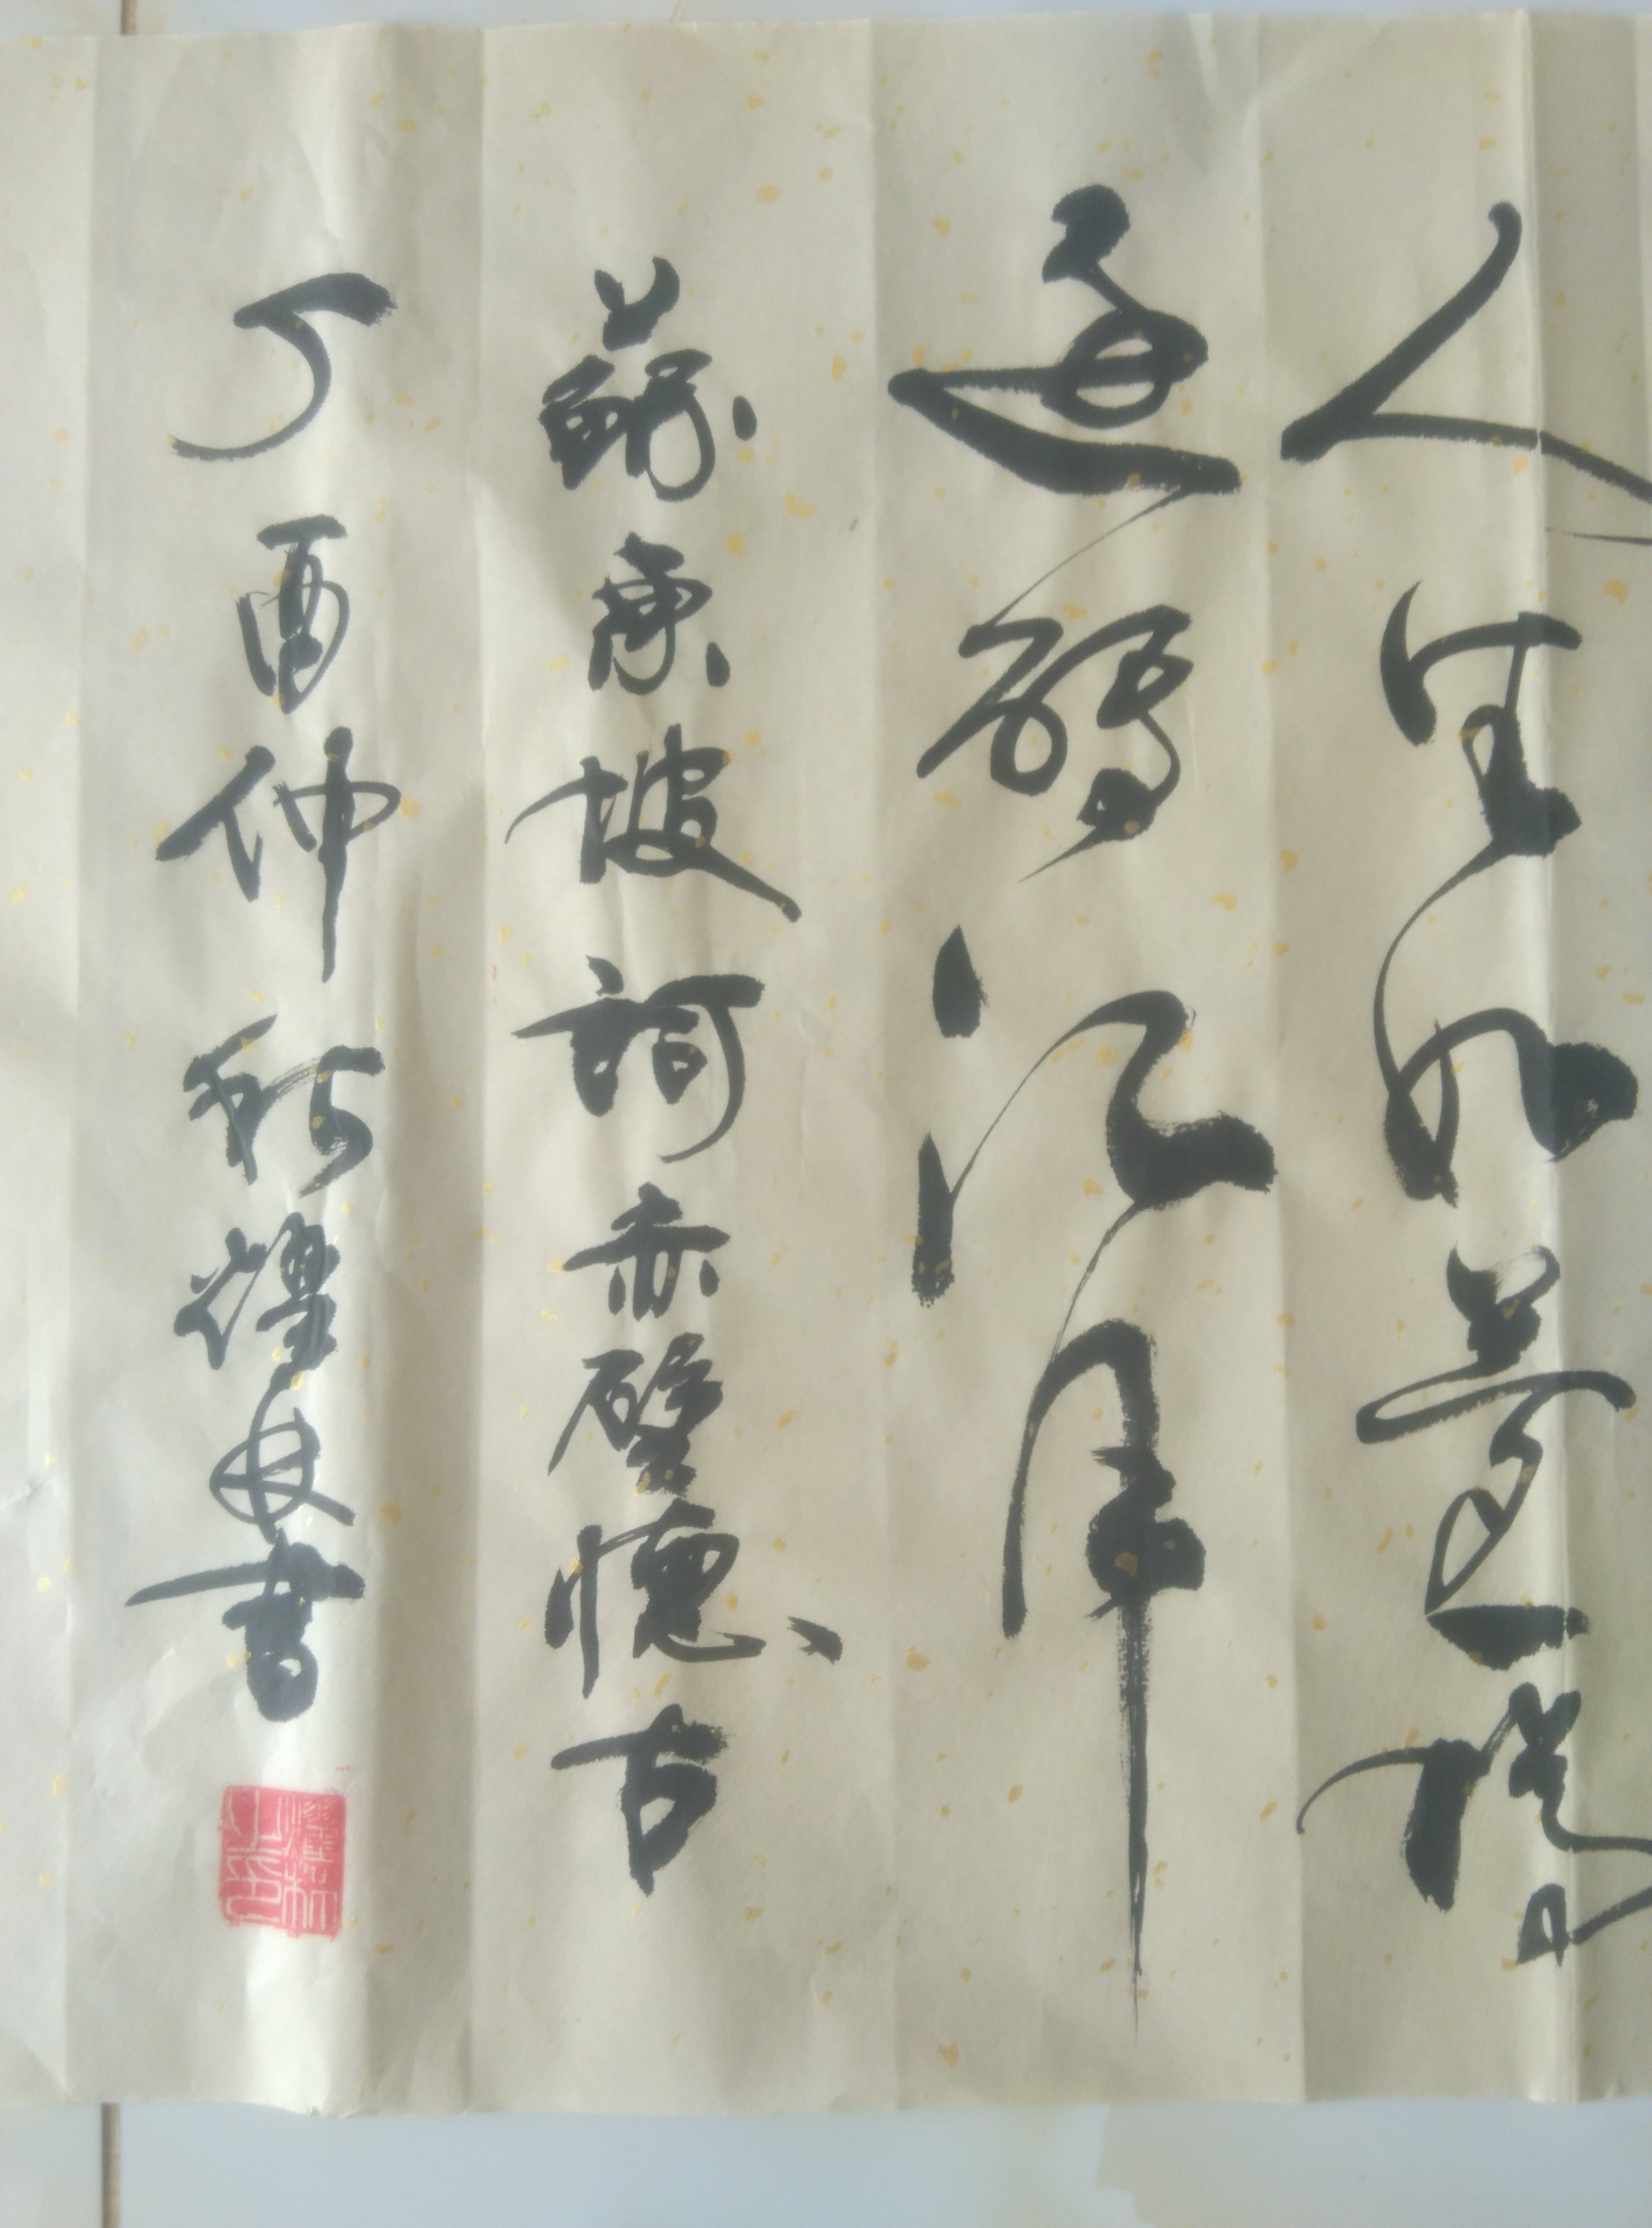 人生如夢一樽
還酹江月
蘇東坡詞赤壁懷古
丁酉仲秋書